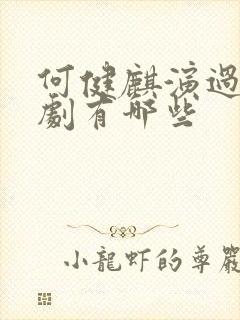 何健麒演過
劇有哪些
小龍虾的尊嚴